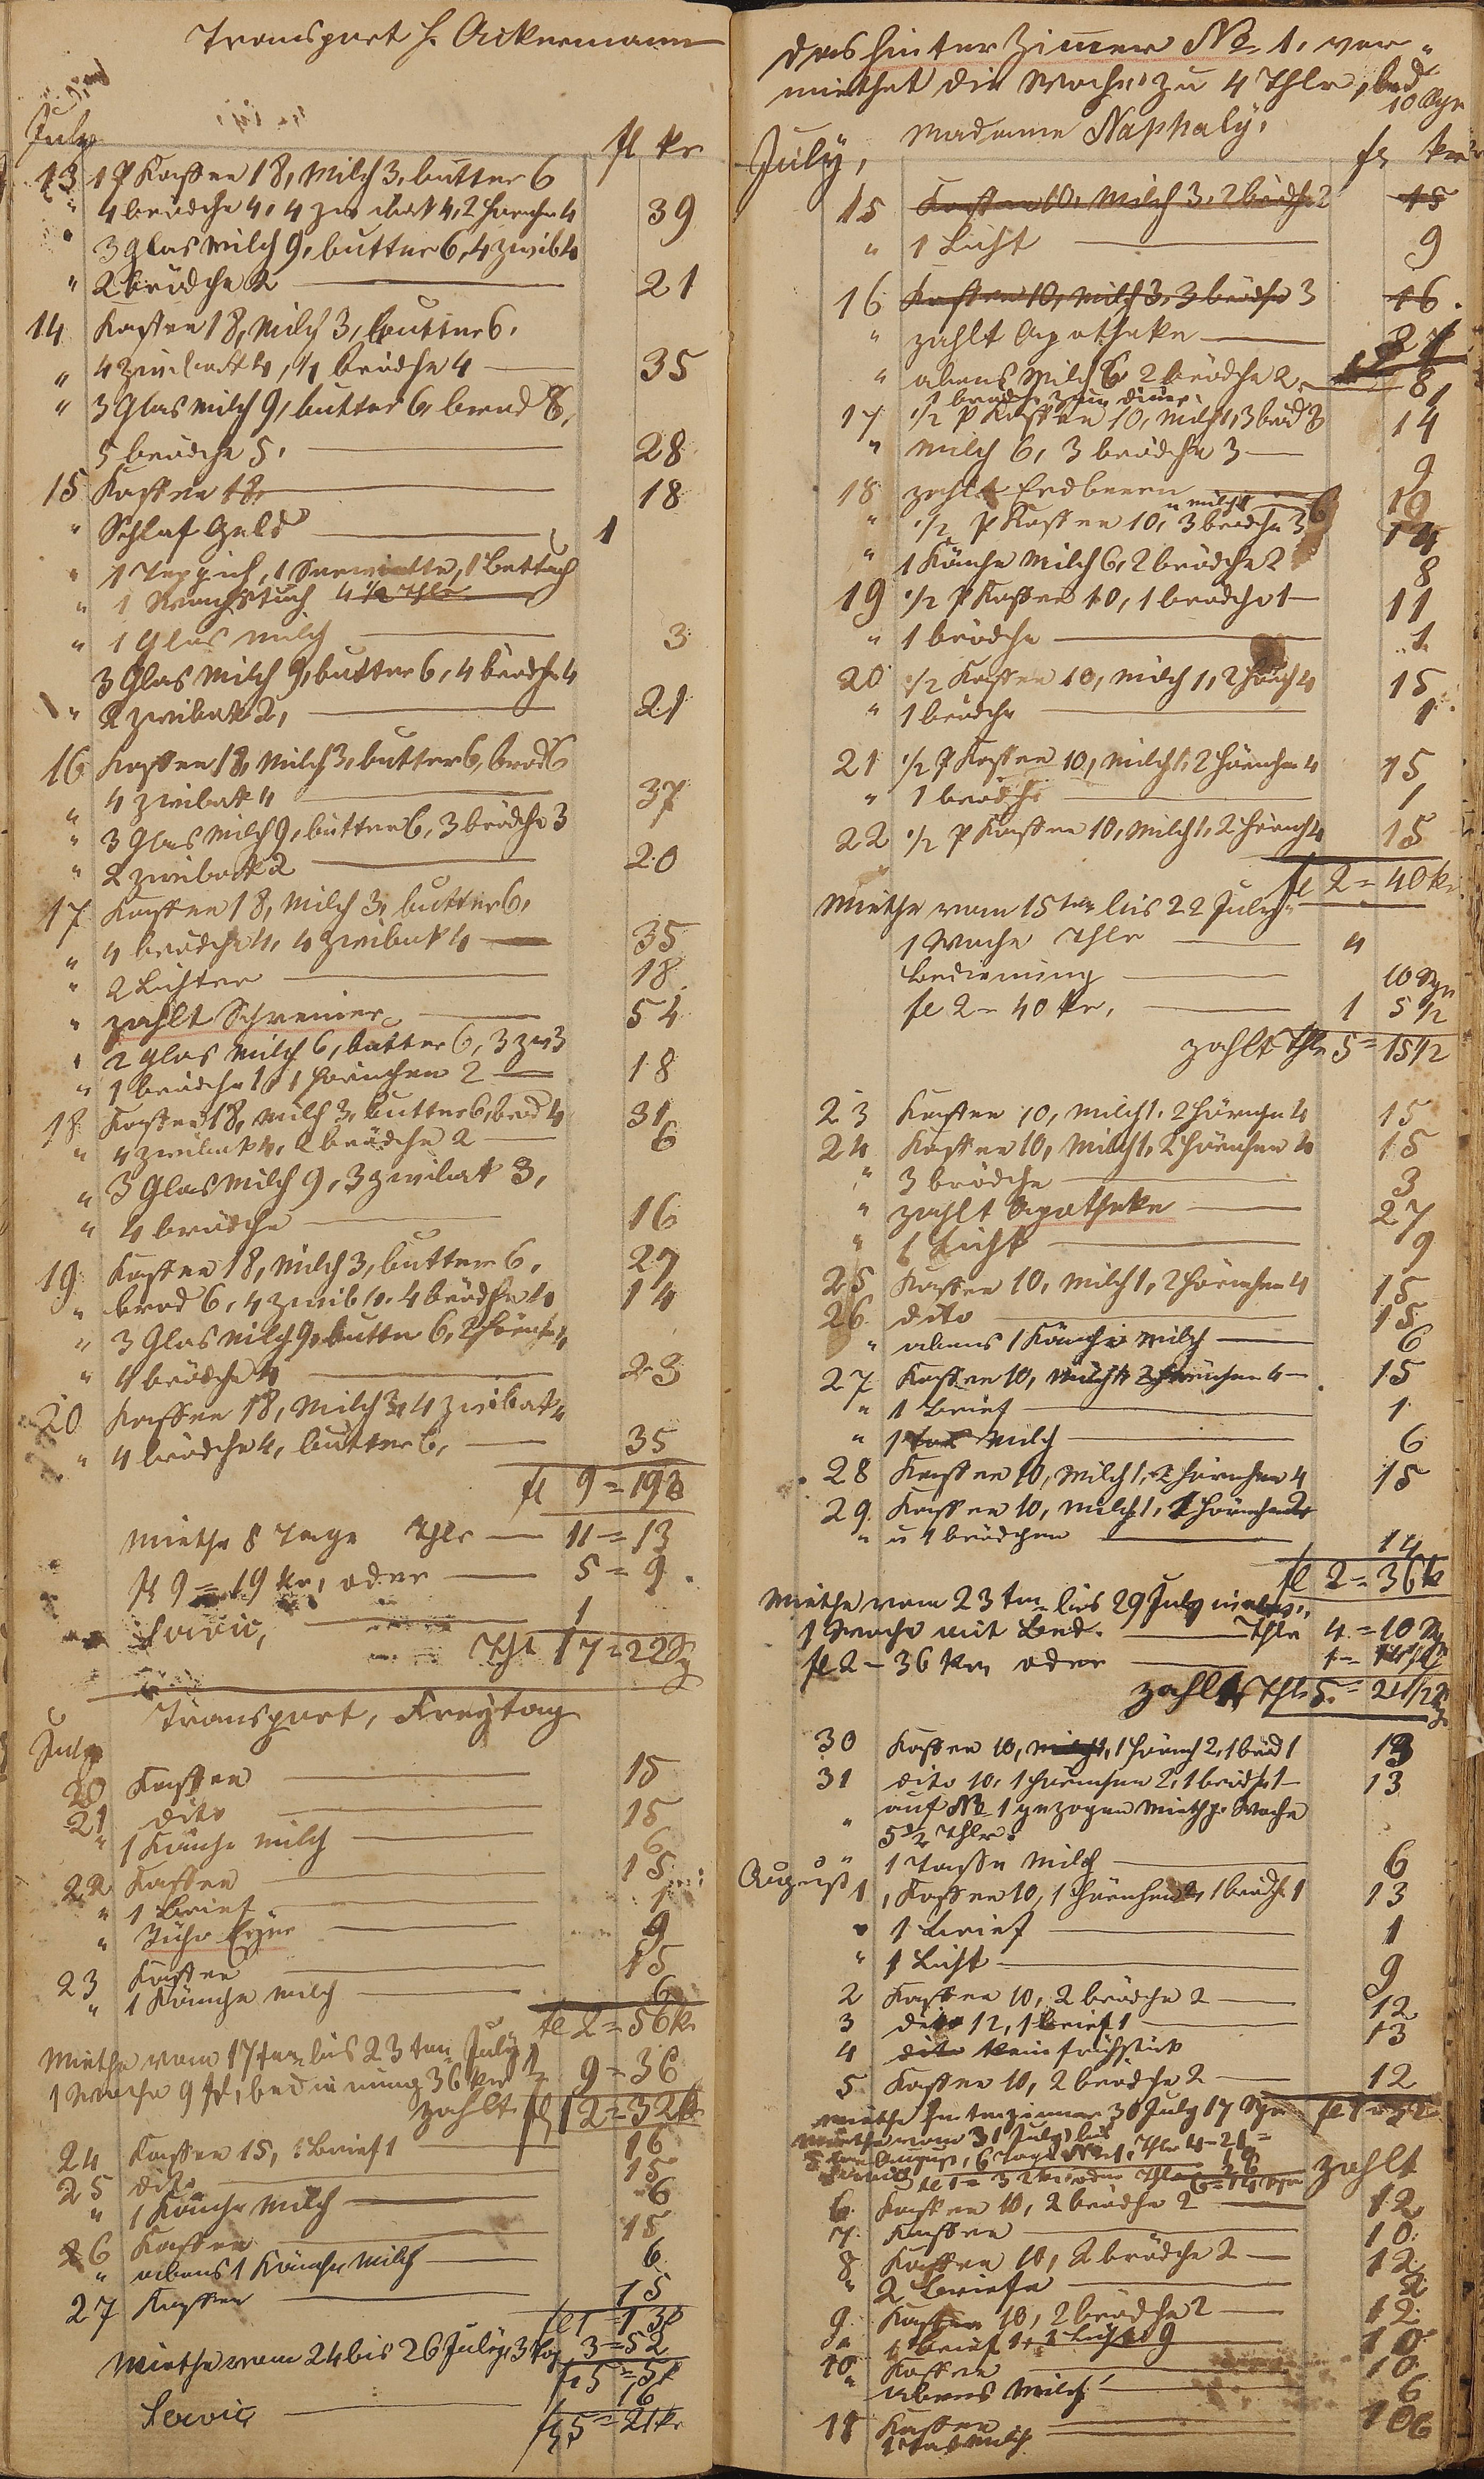 Transport H. Ackermann
July
fl kr
13 1 P Kaffee 18, Milch 3, butter 6
" 4 brödche 4, 4 zwibak 4, 2 Hörnche 4 39
" 3 Glas Milch 9, butter 6, 4 zwib 4
" 2 brödche 2 21
14 Kaffee 18, Milch 3, butter 6,
" 4 Zwiback 4, 4 brödche 4 35
" 3 Glas Milch 9, butter 6, brod 8,
5 brödche 5, 28
15 Kaffee 18, 18
" Schlaf Geld 1
" 1 Teppich, 1 Serviette, 1 Bettuch
" 1 Wachstuch 4 1/2 Thlr
" 1 Glas Milch 3
3 Glas Milch 9, butter 6, 4 brödche 4
" 2 zwibak 2, 21
16 Kaffee 18, Milch 3, butter 6, brod 6
" 4 zwibak 4 37
" 3 Glas Milch 9, butter 6, 3 brödche 3
" 2 zwiback 2 20
17 Kaffee 18, Milch 3, butter 6,
" 4 brödche 4, 4 zwibak 4 35
" 2 Lichter 18
" zahlt Schreiner 54
" 2 Glas Milch 6, butter 6, 3 zw 3
" 1 brödche 1, 1 Hörnchen 2 18
18 Kaffee 18, Milch 3, butter 6, brod 4 31
" 4 zwibak 4, 2 brödche 2 6
" 3 Glas Milch 9, 3 zwibak 3,
" 4 brödche 16
19 Kaffee 18, Milch 3, butter 6, 27
" brod 6, 4 zwib 4, 4 brödche 4 14
" 3 Glas Milch 9, butter 6, 2 Hörnche 4
" 4 brödche 4 23
20 Kaffee 18, Milch 3, 4 zwibak 4
" 4 brödche 4, butter 6, 35
fl 9 = 19
Miethe 8 Tage Thlr 11 = 13
fl 9 = 19 kr, oder 5 = 9
Servic, 1
Thl 17 = 22 Sg
Transport, Freytag
July
20 Kaffee 15
21 dito 15
" 1 Känche Milch 6
22 Kaffee 15
" 1 Brief 1
" 9
23 Kaffee 15
" 1 Känche Milch 6
fl 2 = 56 kr
Miethe vom 17ten bis 23ten July
1 Woche 9 fl, bedienung 36 kr 9 = 36
zahlt fl 12 = 32 kr
24 Kaffee 15, 1 Brief 1 16
25 dito 15
" 1 Känche Milch 6
26 Kaffee 15
" abens 1 Känche Milch 6
27 Kaffee 15
fl 1 = 13
Miethe vom 24 bis 26 July, 3 Tag 3 = 52
fl 5 = 5 k
Servic 16
fl 5 = 21 kr
das hinter Zimmer No 1, ver-
miethet die Woche zu 4 Thlr, bed
10 Sgr
Madame Naphaly,
July, fl kr
15 Kaffee 10, Milch 3, 2 brödche 2 15
" 1 Licht 9
16 Kaffee 10, Milch 3, 3 brödche 3 16
" zahlt Apotheke 27
" abens Milch 6 2 brödche 2 8,
1 brödche zum diner,
17 1/2 P Kaffee 10, Milch 1, 3 bröd 3 14
" Milch 6, 3 brödche 3 9
18 zahlt Erdbeeren 19
" 1/2 P Kaffee 10, u Milch 1 3 brödche 3 14
" 1 Känche Milch 6, 2 brödche 2 8
19 1/2 P Kaffee 10, 1 brödche 1 11
" 1 brödche 1
20 1/2 Kaffee 10, Milch 1, 2 Hörnch 4 15
" 1 brödche 1
21 1/2 P Kaffee 10, Milch 1, 2 Hörnchen 4 15
" 1 brödche 1
22 1/2 P Kaffee 10, Milch 1, 2 Hörnch 4 15
fl 2 = 40 kr
Miethe vom 15ten bis 22 July
1 Woche Thlr 4
bedienung 10 Sgr
fl 2 = 40 kr, 1 5 1/2
zahlt Thlr 5 = 15 1/2
23 Kaffee 10, Milch 1, 2 Hörnche 4 15
24 Kaffee 10, Milch 1, 2 Hörnchen 4 15
" 3 brödche 3
" zahlt Apotheke 27
" 1 Licht 9
25 Kaffee 10, Milch 1, 2 Hörnchen 4 15
26 dito 15
" abens 1 Känche Milch 6
27 Kaffee 10, Milch 1, 2 Hörnchen 4 15
" 1 Brief 1
" 1 Milch 6
28 Kaffee 10, Milch 1, 2 Hörnchen 4 15
29 Kaffee 10, Milch 1, 1 Hörnchen 2
" u 1 brödchen 14
fl 2 = 36 k
Miethe vom 23ten bis 29 July
1 Woche mit bed. Thlr 4 = 10 Sg
fl 2 = 36 kr oder
zahlt Thlr 5 = 24 1/2 Sg
30 Kaffee 10, Milch 1, 1 Hörnch 2, 1 bröd 1 13
31 dito 10, 1 Hörnchen 2, 1 brödche 1 13
" auf No 1 gezogen Miethe p. Woche
5 1/2 Thlr.
" 1 Tasse Milch 6
August 1 Kaffee 10, 1 Hörnchen 2, 1 brödch 1 13
" 1 Brief 1
" 1 Licht 9
2 Kaffee 10, 2 brödche 2 12
3 dito 12, 1 Brief 1 13
4 dito kein frühstück
5 Kaffee 10, 2 brödche 2 12
Miethe hinterzimmer 30 July 17 Sgr
Miethe vom 31 July bis
5ten August, 6 Tage No 1, Thlr 4 = 21
zahlt
6 Kaffee 10, 2 brödche 2 12
7 Kaffee 10
8 Kaffee 10, 2 brödche 2 12
" 2 Briefe 2
9 Kaffee 10, 2 brödche 2 12
" 1 Brief 1, 1 Licht 9 10
10 Kaffee 10
" abens Milch 6
11 Kaffee 10
1 Tas Milch 6